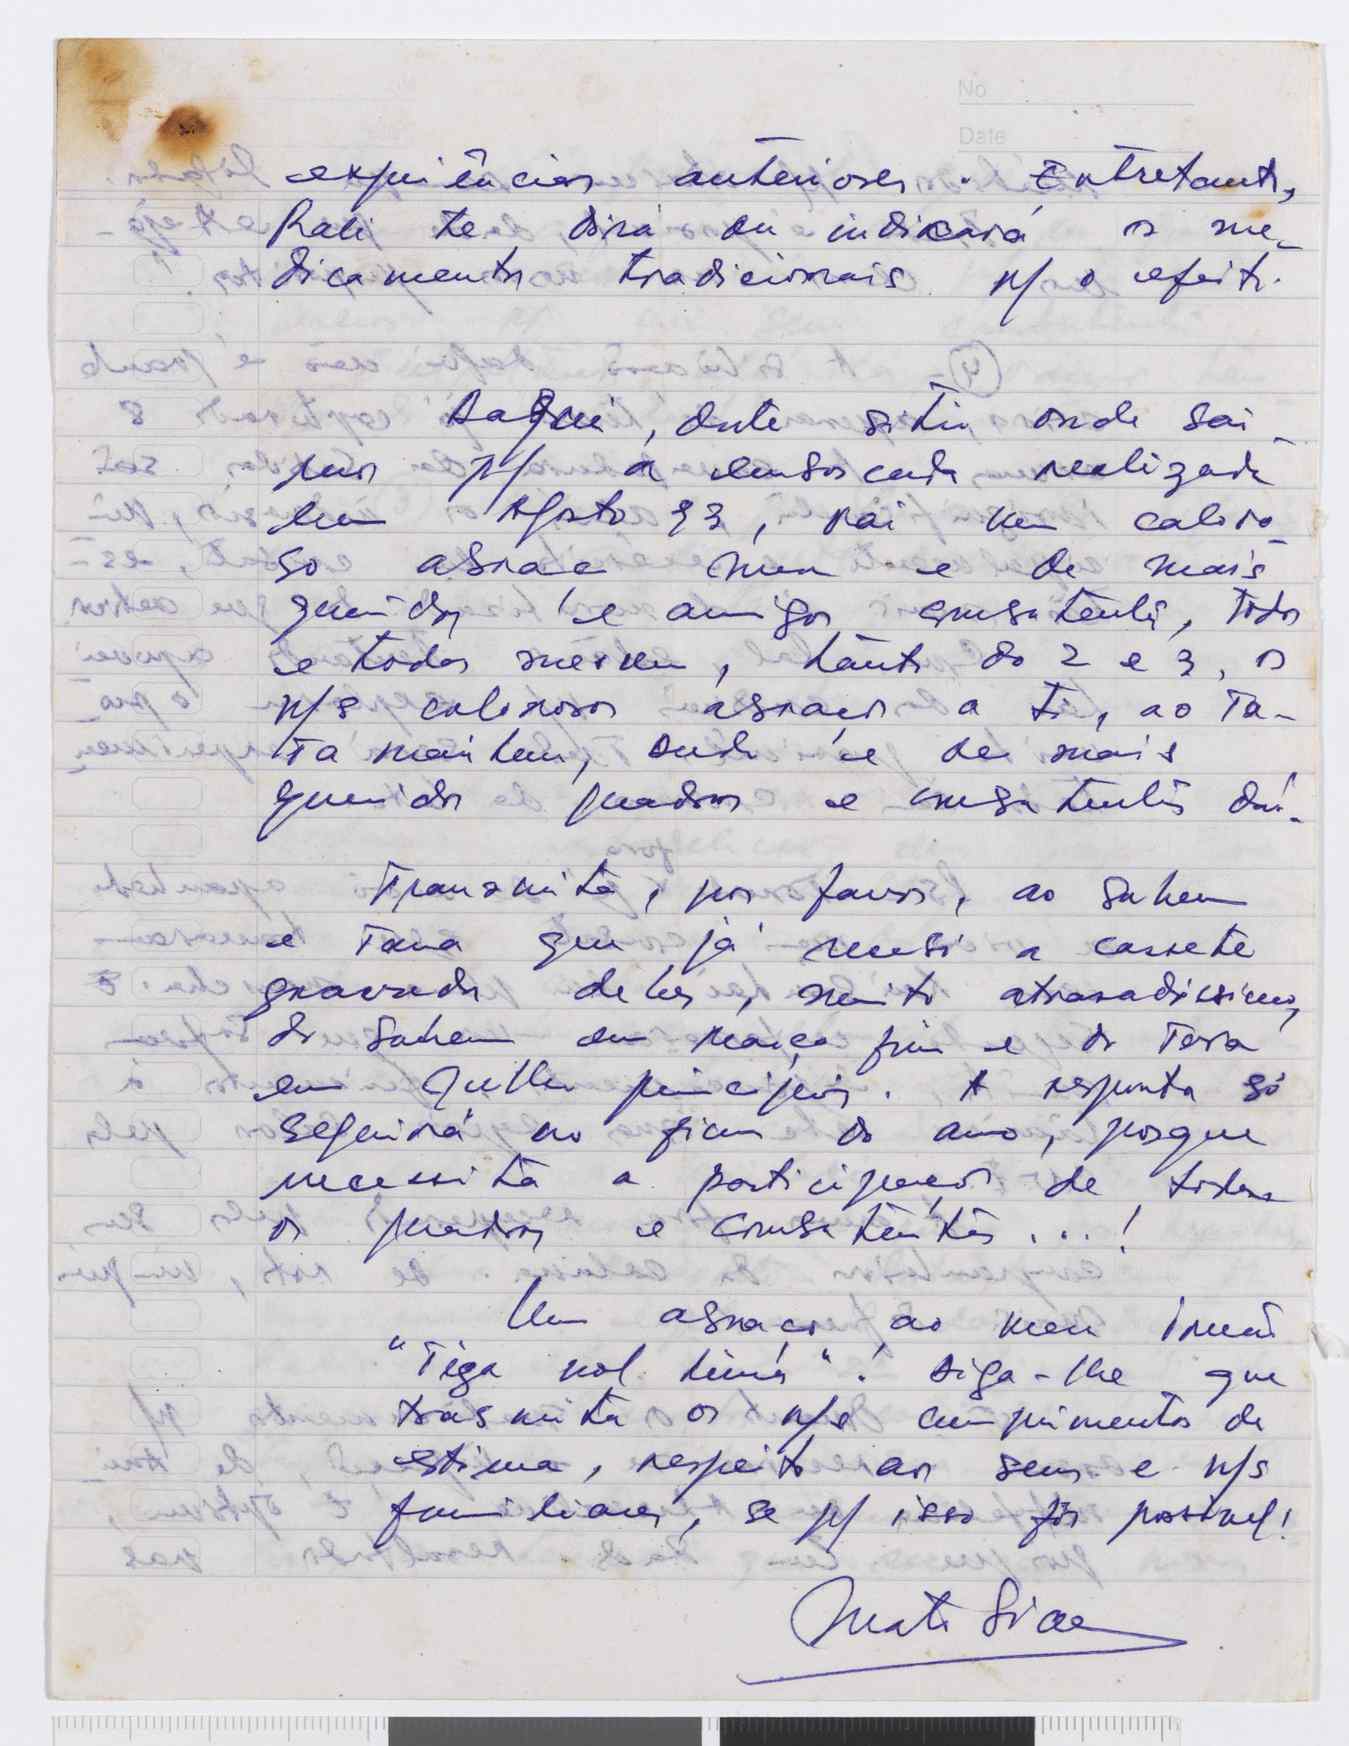 No
Date
experiências anteriores. Entretanto,
Rali te dirá ou indicará os me-
dicamentos tradicionais p/ o efeito.
Daqui, deste sitio onde sai
mos p/ a emboscada realizada
em Agosto 93, vai um caloro-
so abraço meu e de mais
queridos e amigos combatentes, todos
e todas mesmo, tanto do 2 e 3, os
n/s calorosos abraços a ti, ao Ta-
ta mailau, onde e de mais
queridos quadros e combatentes daí.
Transmita, por favor, ao Sahem
e Tara que já recebi a cassete
gravada deles, muito atrasadíssimo,
do Sahem em Março fim e do Tara
em Julho princípios. A resposta só
seguirá no fim do ano, porque
necessita a participação de todos
os quadros e combatentes...!
Um abraço ao meu irmão
"Tiga nol lima". Diga-lhe que
trasmita os n/s cumprimentos de
estima, respeito aos seus e n/s
familiares, se p/ isso fôr possivel!